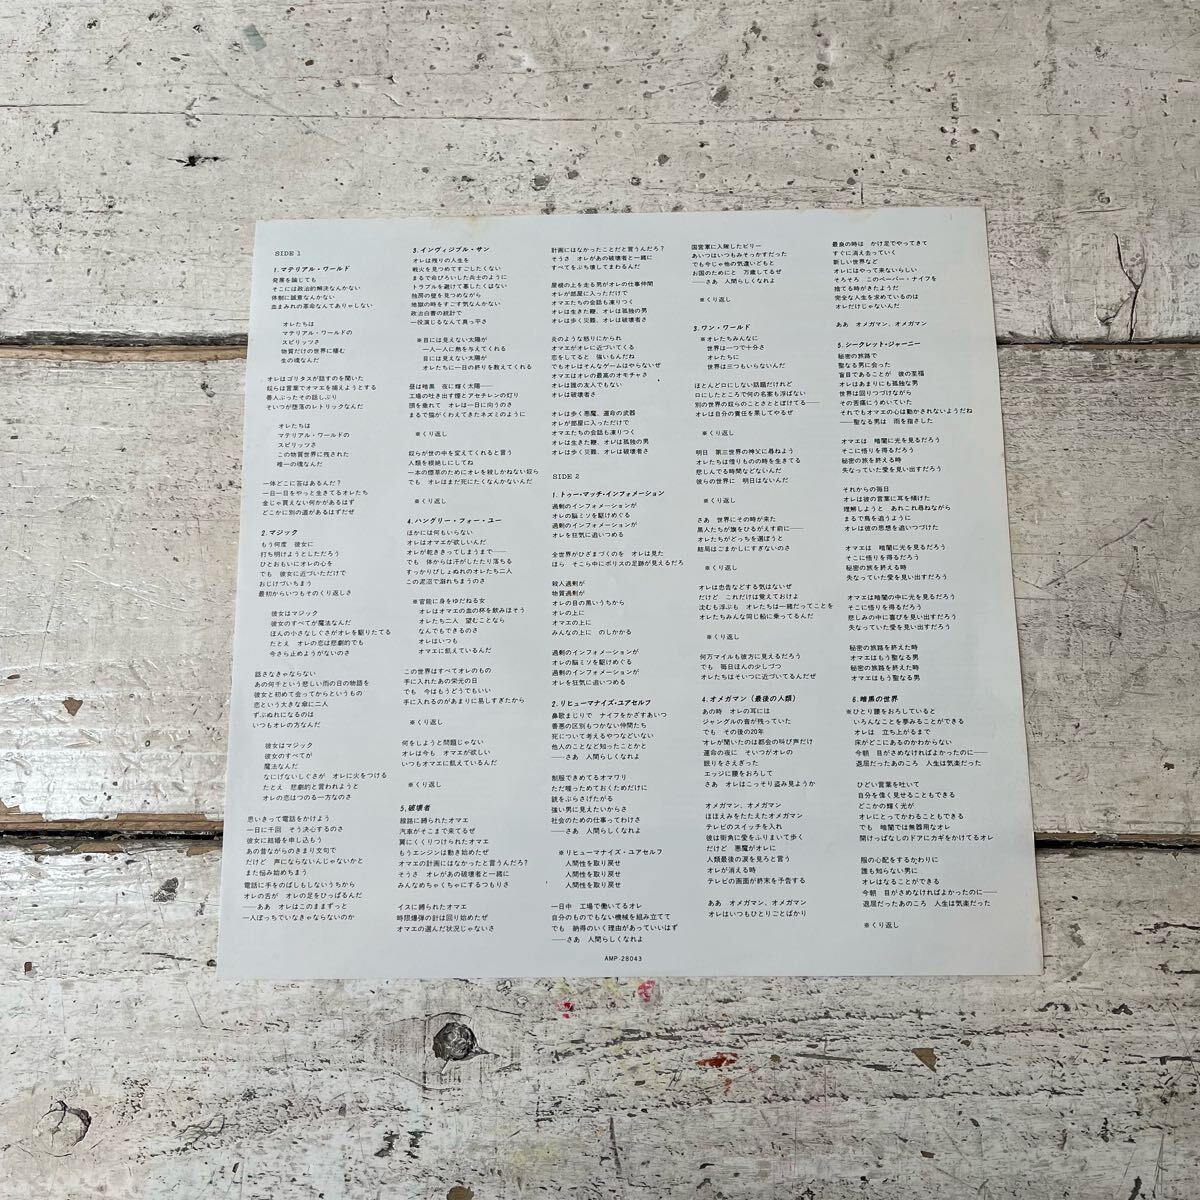 SIDE 1
1. マテリアル・ワールド
発展を論じても
そこには政治的解決なんかない
体制に誠意なんかない
血まみれの革命なんてありゃしない
オレたちは
マテリアル・ワールドの
スピリッツさ
物質だけの世界に棲む
生の魂なんだ
オレはゴリタスが話すのを聞いた
奴らは言葉でオマエを捕えようとする
善人ぶったその話しぶり
そいつが堕落のレトリックなんだ
オレたちは
マテリアル・ワールドの
スピリッツさ
この物質世界に残された
唯一の魂なんだ
一体どこに答はあるんだ?
一日一日をやっと生きてるオレたち
金じゃ買えない何かがあるはず
どこかに別の道があるはずだぜ
2. マジック
もう何度 彼女に
打ち明けようとしただろう
ひとおもいにオレの心を
でも 彼女に近づいただけで
おじけづいちまう
最初からいつものくり返しさ
彼女はマジック
彼女のすべてが魔法なんだ
ほんの小さなしぐさがオレを駆りたてる
たとえ オレの恋は悲劇的でも
今さら止めようがないのさ
話さなきゃならない
あの何千という悲しい雨の日の物語を
彼女と初めて会ってからというもの
恋という大きな傘に二人
ずぶぬれになるのは
いつもオレの方なんだ
彼女はマジック
彼女のすべてが
魔法なんだ
なにげないしぐさが オレに火をつける
たとえ 悲劇的と言われようと
オレの恋はつのる一方なのさ
思いきって電話をかけよう
一日に千回 そう決心するのさ
彼女に結婚を申し込もう
あの昔ながらのきまり文句で
だけど 声にならないんじゃないかと
また悩み始めちまう
電話に手をのばしもしないうちから
オレの舌が オレの足をひっぱるんだ
——ああ オレはこのままずっと
一人ぼっちでいなきゃならないのか
3. インヴィジブル・サン
オレは残りの人生を
戦火を見つめてすごしたくない
まるで命びろいした兵士のように
トラブルを避けて暮したくはない
独房の壁を見つめながら
地獄の時をすごす気なんかない
政治白書の統計で
一役演じるなんて真っ平さ
※目には見えない太陽が
一人一人に熱を与えてくれる
目には見えない太陽が
オレたちに一日の終りを教えてくれる
昼は暗黒 夜に輝く太陽——
工場の吐き出す煙とアセチレンの灯り
頭を垂れて オレは一日に向うのさ
まるで猫がくわえてきたネズミのように
※くり返し
奴らが世の中を変えてくれると言う
人類を根絶しにしてね
一本の煙草のためにオレを殺しかねない奴ら
でも オレはまだ死にたくなんかないんだ
※くり返し
4. ハングリー・フォー・ユー
ほかには何もいらない
オレはオマエが欲しいんだ
オレが乾ききってしまうまで——
でも 体からは汗がしたたり落ちる
すっかりびしょぬれのオレたち二人
この泥沼で溺れちまうのさ
※官能に身をゆだねる女
オレはオマエの血の杯を飲みほそう
オレたち二人 望むことなら
なんでもできるのさ
オレはいつも
オマエに飢えているんだ
この世界はすべてオレのもの
手に入れたあの栄光の日
でも 今はもうどうでもいい
手に入れるのがあまりに易しすぎたから
※くり返し
何をしようと問題じゃない
オレは今も オマエが欲しい
いつもオマエに飢えているんだ
※くり返し
5. 破壊者
線路に縛られたオマエ
汽車がそこまで来てるぜ
翼にくくりつけられたオマエ
もうエンジンは動き始めたぜ
オマエの計画にはなかったと言うんだろ?
そうさ オレがあの破壊者と一緒に
みんなめちゃくちゃにするつもりさ
イスに縛られたオマエ
時限爆弾の針は回り始めたぜ
オマエの選んだ状況じゃないさ
計画にはなかったことだと言うんだろ?
そうさ オレがあの破壊者と一緒に
すべてをぶち壊してまわるんだ
屋根の上を走る男がオレの仕事仲間
オレが部屋に入っただけで
オマエたちの会話も凍りつく
オレは生きた鞭、オレは孤独の男
オレは歩く災難、オレは破壊者さ
炎のような怒りにかられ
オマエがオレに近づいてくる
恋をしてると 強いもんだね
でもオレはそんなゲームはやらないぜ
オマエはオレの最高のオモチャさ
オレは誰の友人でもない
オレは破壊者さ
オレは歩く悪魔、運命の武器
オレが部屋に入っただけで
オマエたちの会話も凍りつく
オレは生きた鞭、オレは孤独の男
オレは歩く災難、オレは破壊者さ
SIDE 2
1. トゥー・マッチ・インフォメーション
過剰のインフォメーションが
オレの脳ミソを駆けめぐる
過剰のインフォメーションが
オレを狂気に追いつめる
全世界がひざまづくのを オレは見た
ほら そこら中にポリスの足跡が見えるだろ
殺人過剰が
物質過剰が
オレの目の黒いうちから
オレの上に
オマエの上に
みんなの上に のしかかる
過剰のインフォメーションが
オレの脳ミソを駆けめぐる
過剰のインフォメーションが
オレを狂気に追いつめる
2. リヒューマナイズ・ユアセルフ
鼻歌まじりで ナイフをかざすあいつ
善悪の区別もつかない仲間たち
死について考えるやつなどいない
他人のことなど知ったことかと
——さあ 人間らしくなれよ
制服できめてるオマワリ
ただ喋ってめておくためだけに
銃をぶらさげたがる
強い男に見えたいからさ
社会のための仕事ってわけさ
——さあ 人間らしくなれよ
※リヒューマナイズ・ユアセルフ
人間性を取り戻せ
人間性を取り戻せ
人間性を取り戻せ
一日中 工場で働いてるオレ
自分のものでもない機械を組み立てて
でも 納得のいく理由があっていいはず
——さあ 人間らしくなれよ
国営軍に入隊したビリー
あいつはいつもみそっかすだった
でも今じゃ他の気違いどもと
お国のためにと 万歳してるぜ
——さあ 人間らしくなれよ
※くり返し
3. ワン・ワールド
※オレたちみんなに
世界は一つで十分さ
オレたちに
世界は三つもいらないんだ
ほとんど口にしない話題だけれど
口にしたところで何の名案も浮ばない
別の世界の奴らのことさととぼけてる——
オレは自分の責任を果してやるぜ
※くり返し
明日 第三世界の神父に尋ねよう
オレたちは借りものの時を生きてる
悲しんでる時間などないんだ
彼らの世界に 明日はないんだ
※くり返し
さあ 世界にその時が来た
黒人たちが旗をひるがえす前に——
オレたちがどっちを選ぼうと
結局はごまかしにすぎないのさ
※くり返し
オレは忠告などする気はないぜ
だけど これだけは覚えておけよ
沈むも浮ぶも オレたちは一緒だってことを
オレたちみんな同じ船に乗ってるんだ
※くり返し
何万マイルも彼方に見えるだろう
でも 毎日ほんの少しづつ
オレたちはそいつに近づいてるんだぜ
4. オメガマン(最後の人類)
あの時 オレの耳には
ジャングルの音が残っていた
でも その後の20年
オレが聞いたのは都会の叫び声だけ
運命の夜に そいつがオレの
眠りをさえぎった
エッジに腰をおろして
さあ オレはこっそり盗み見ようか
オメガマン、オメガマン
ほほえみをたたえたオメガマン
テレビのスイッチを入れ
彼は街角に愛をふりまいて歩く
だけど 悪魔がオレに
人類最後の涙を見ろと言う
オレが消える時
テレビの画面が終末を予告する
ああ オメガマン、オメガマン
オレはいつもひとりごとばかり
最良の時は かけ足でやってきて
すぐに消え去っていく
新しい世界など
オレにはやって来ないらしい
そろそろ このペーパー・ナイフを
捨てる時がきたようだ
完全な人生を求めているのは
オレだけじゃないんだ
ああ オメガマン、オメガマン
5. シークレット・ジャーニー
秘密の旅路で
聖なる男に会った
盲目であることが 彼の至福
オレはあまりにも孤独な男
世界は回りつづけながら
その苦痛にうめいていた
それでもオマエの心は動かされないようだね
——聖なる男は 雨を指さした
オマエは 暗闇に光を見るだろう
そこに悟りを得るだろう
秘密の旅を終える時
失なっていた愛を見い出すだろう
それからの毎日
オレは彼の言葉に耳を傾けた
理解しようと あれこれ尋ねながら
まるで鳥を追うように
オレは彼の思想を追いつづけた
オマエは 暗闇に光を見るだろう
そこに悟りを得るだろう
秘密の旅を終える時
失なっていた愛を見い出すだろう
オマエは暗闇の中に光を見るだろう
そこに悟りを得るだろう
悲しみの中に喜びを見い出すだろう
失なっていた愛を見い出すだろう
秘密の旅路を終えた時
オマエはもう聖なる男
秘密の旅路を終えた時
オマエはもう聖なる男
6. 暗黒の世界
※ひとり腰をおろしていると
いろんなことを夢みることができる
オレは 立ち上がるまで
床がどこにあるのかわからない
今朝 目がさめなければよかったのに——
退屈だったあのころ 人生は気楽だった
ひどい言葉を吐いて
自分を偉く見せることもできる
どこかの輝く光が
オレにとってかわることもできる
でも 暗闇では無器用なオレ
開けっぱなしのドアにカギをかけてるオレ
服の心配をするかわりに
誰も知らない男に
オレはなることができる
今朝 目がさめなければよかったのに——
退屈だったあのころ 人生は気楽だった
※くり返し
AMP-28043